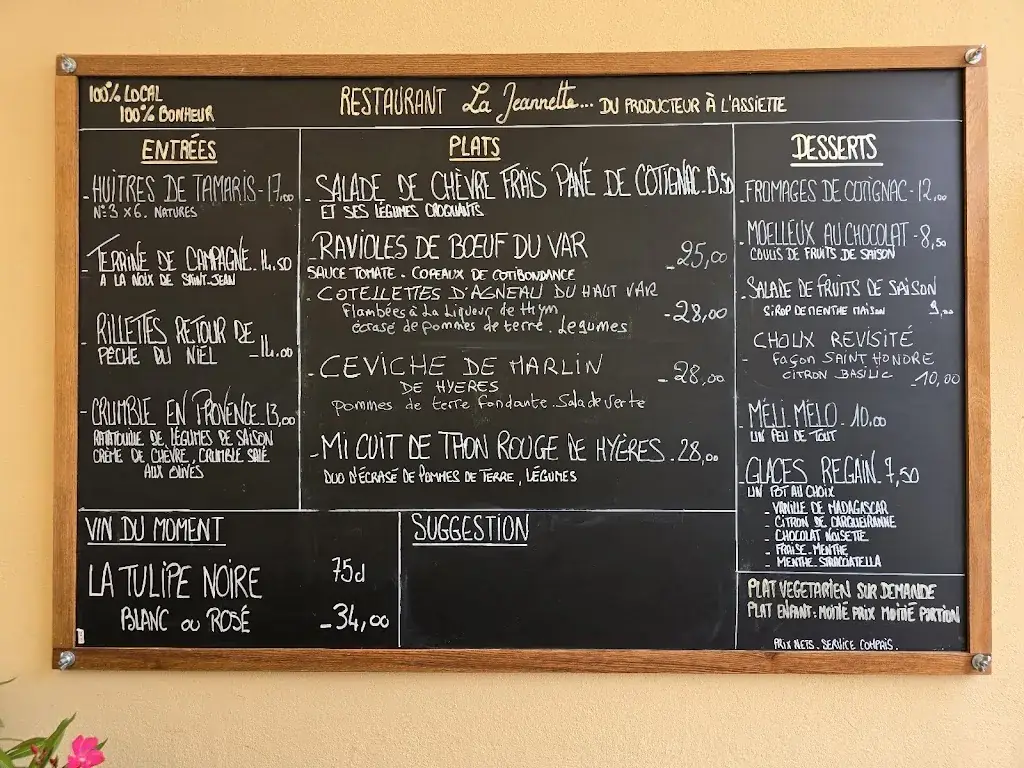 100% LOCAL
100% BONHEUR
RESTAURANT La Jeannette... DU PRODUCTEUR À L'ASSIETTE
ENTRÉES
- HUITRES DE TAMARIS - 17,00
N°3 X6. NATURES
- TERRINE DE CAMPAGNE. 14.50
A LA NOIX DE SAINT-JEAN
- RILLETTES RETOUR DE
PÊCHE DU NIEL - 14.00
- CRUMBLE EN PROVENCE. 13,00
RATATOUILLE DE LÉGUMES DE SAISON
CRÈME DE CHÈVRE, CRUMBLE SALÉ
AUX OLIVES
PLATS
- SALADE DE CHÈVRE FRAIS PANÉ DE COTIGNAC. 19.50
ET SES LÉGUMES CROQUANTS
- RAVIOLES DE BŒUF DU VAR - 25,00
SAUCE TOMATE - COPEAUX DE COTIBONDANCE
- COTELLETTES D'AGNEAU DU HAUT VAR
Flambées à La Liqueur de thym - 28,00
écrasé de pommes de terre. Legumes
- CEVICHE DE MARLIN
DE HYERES - 28,00
pommes de terre fondante. Salade verte
- MI CUIT DE THON ROUGE DE HYÈRES. 28,00
DUO D'ÉCRASÉ DE POMMES DE TERRE, LÉGUMES
DESSERTS
- FROMAGES DE COTIGNAC - 12,00
- MOELLEUX AU CHOCOLAT - 8,50
COULIS DE FRUITS DE SAISON
- SALADE DE FRUITS DE SAISON
SIROP DE MENTHE MAISON 9,00
- CHOUX REVISITÉ
Façon SAINT HONORE
CITRON BASILIC - 10,00
- MELI MELO. 10,00
UN PEU DE TOUT
- GLACES REGAIN. 7,50
UN POT AU CHOIX
- VANILLE DE MADAGASCAR
- CITRON DE CARQUEIRANNE
- CHOCOLAT NOISETTE
- FRAISE-MENTHE
- MENTHE-STRACCIATELLA
VIN DU MOMENT
LA TULIPE NOIRE 75cl
BLANC OU ROSÉ - 34,00
SUGGESTION
PLAT VEGETARIEN SUR DEMANDE
PLAT ENFANT: MOITIÉ PRIX MOITIÉ PORTION
PRIX NETS. SERVICE COMPRIS.